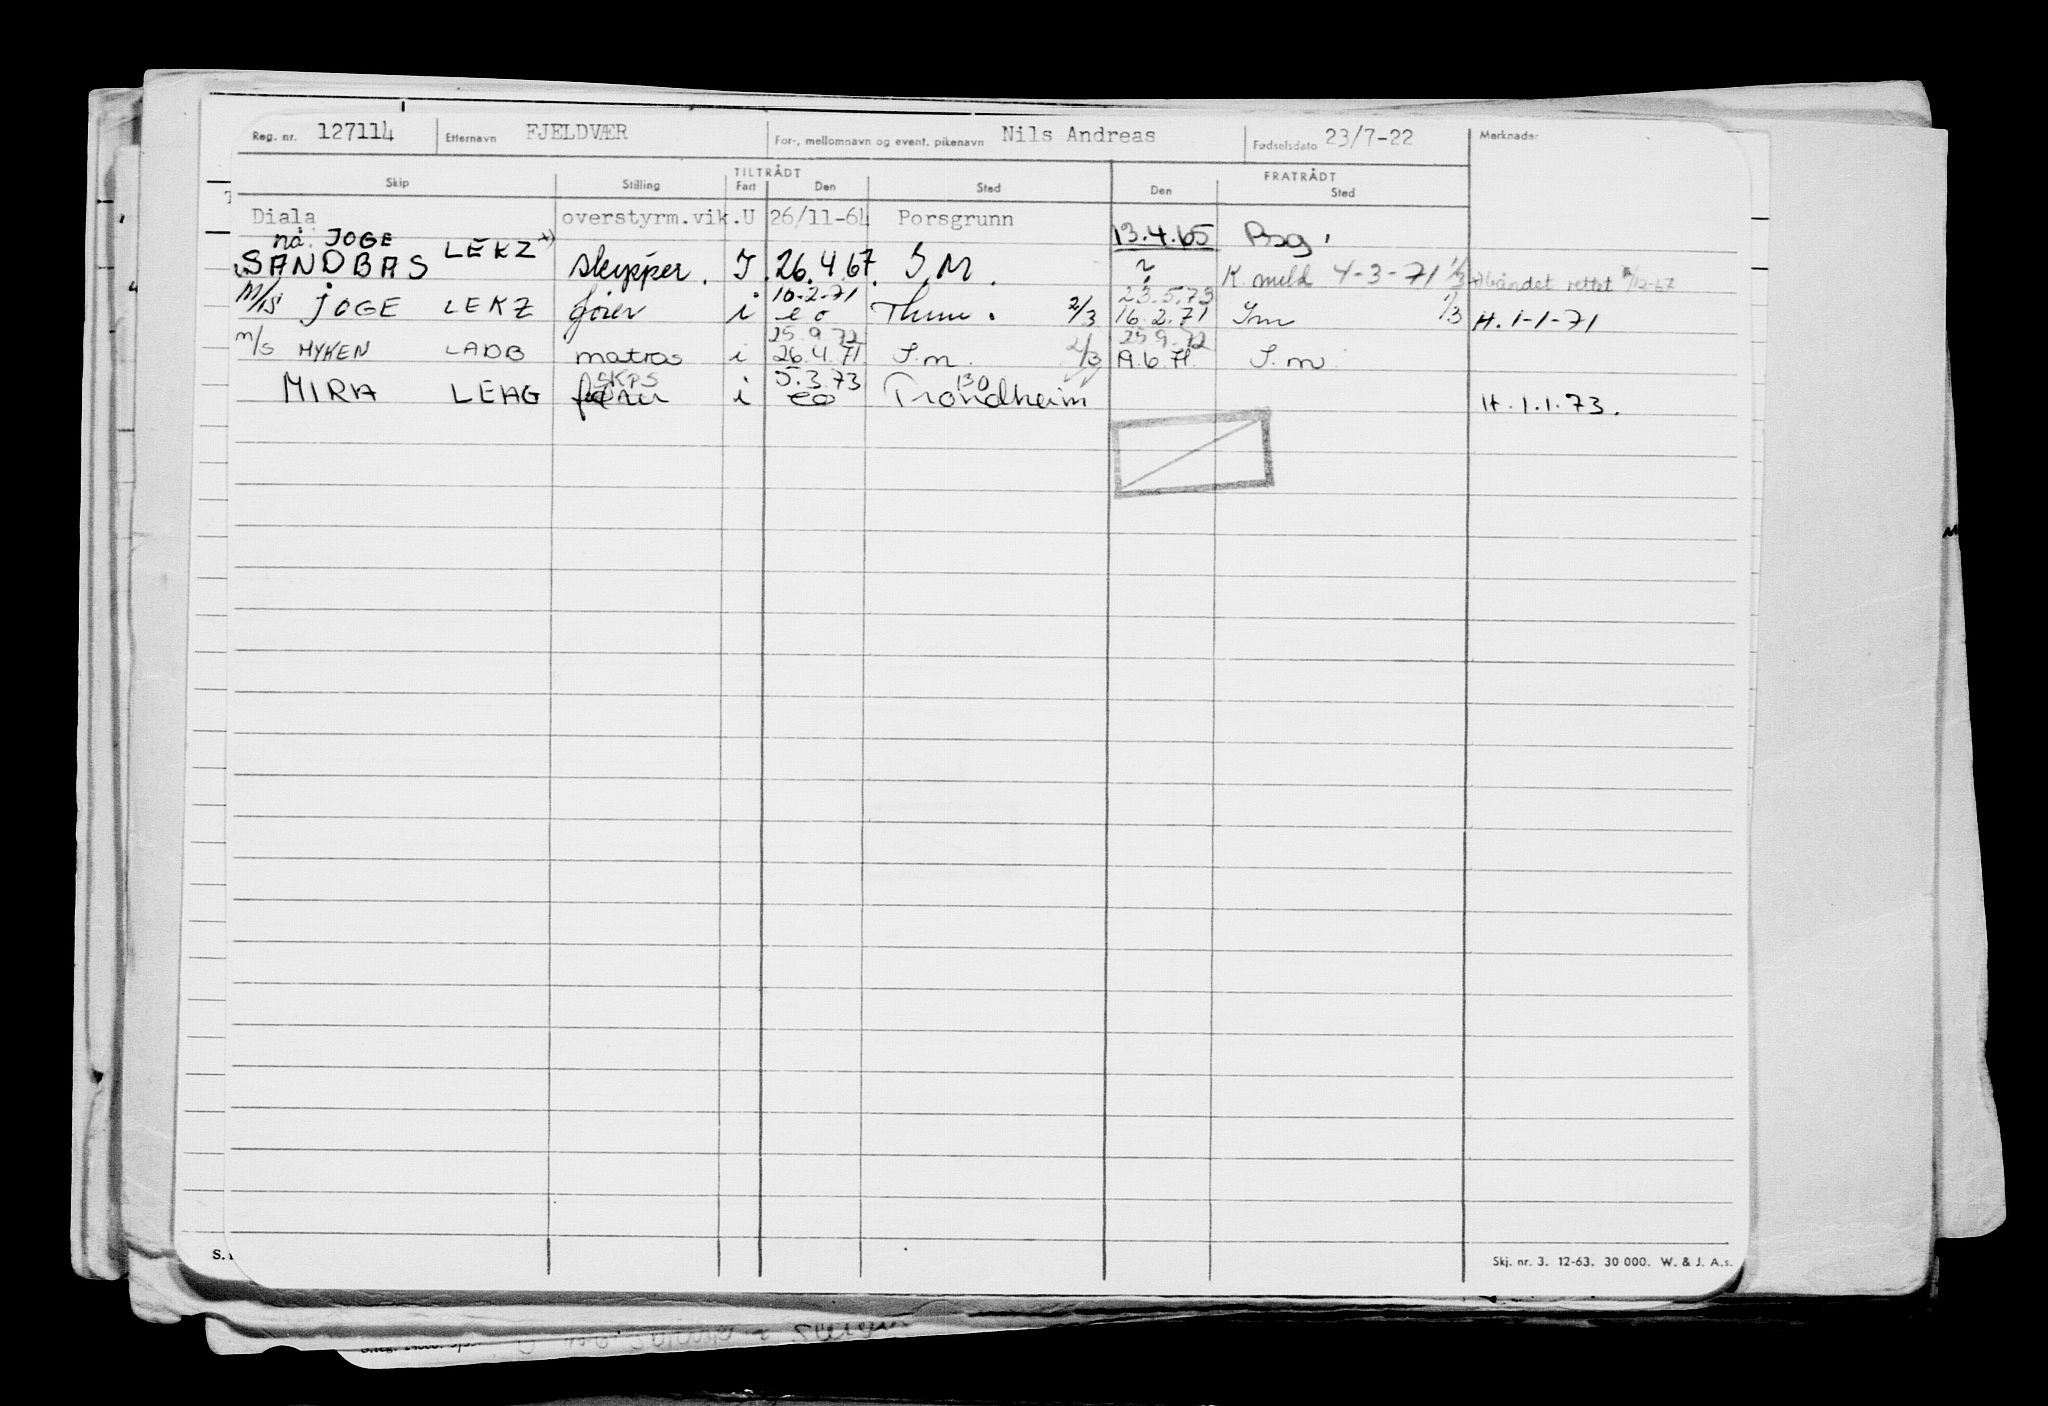 Reg. nr. 127114 Etternavn FJELDVÆR For-, mellomnavn og event. pikenavn Nils Andreas Fødselsdato 23/7-22 Merknader
TILTRÅDT FRATRÅDT
Skip Stilling Fart Den Sted Den Sted
Diala overstyrm.vik. U 26/11-64 Porsgrunn 13.4.65 Psg.
nå: JOGE LEKZ x)
SANDBAS skipper. I 26.4.67. S.M. ? K. meld 4-3-71 1/3 x) båndet rettet /12-67
10.2.71 23.5.73
M/S JOGE LEKZ fører i e o Thm. 2/3 16.2.71 Sm 1/3 H. 1-1-71
25.9.72 25.9.72
M/S MYKEN LADB matros i 26.4.71 S.m. 2/3 S.m.
SKPS 5.3.73 130
MIRA LEAG i eo Trondheim H. 1.1.73.
S.
Skj. nr. 3. 12-63. 30 000. W. & J. A.s.